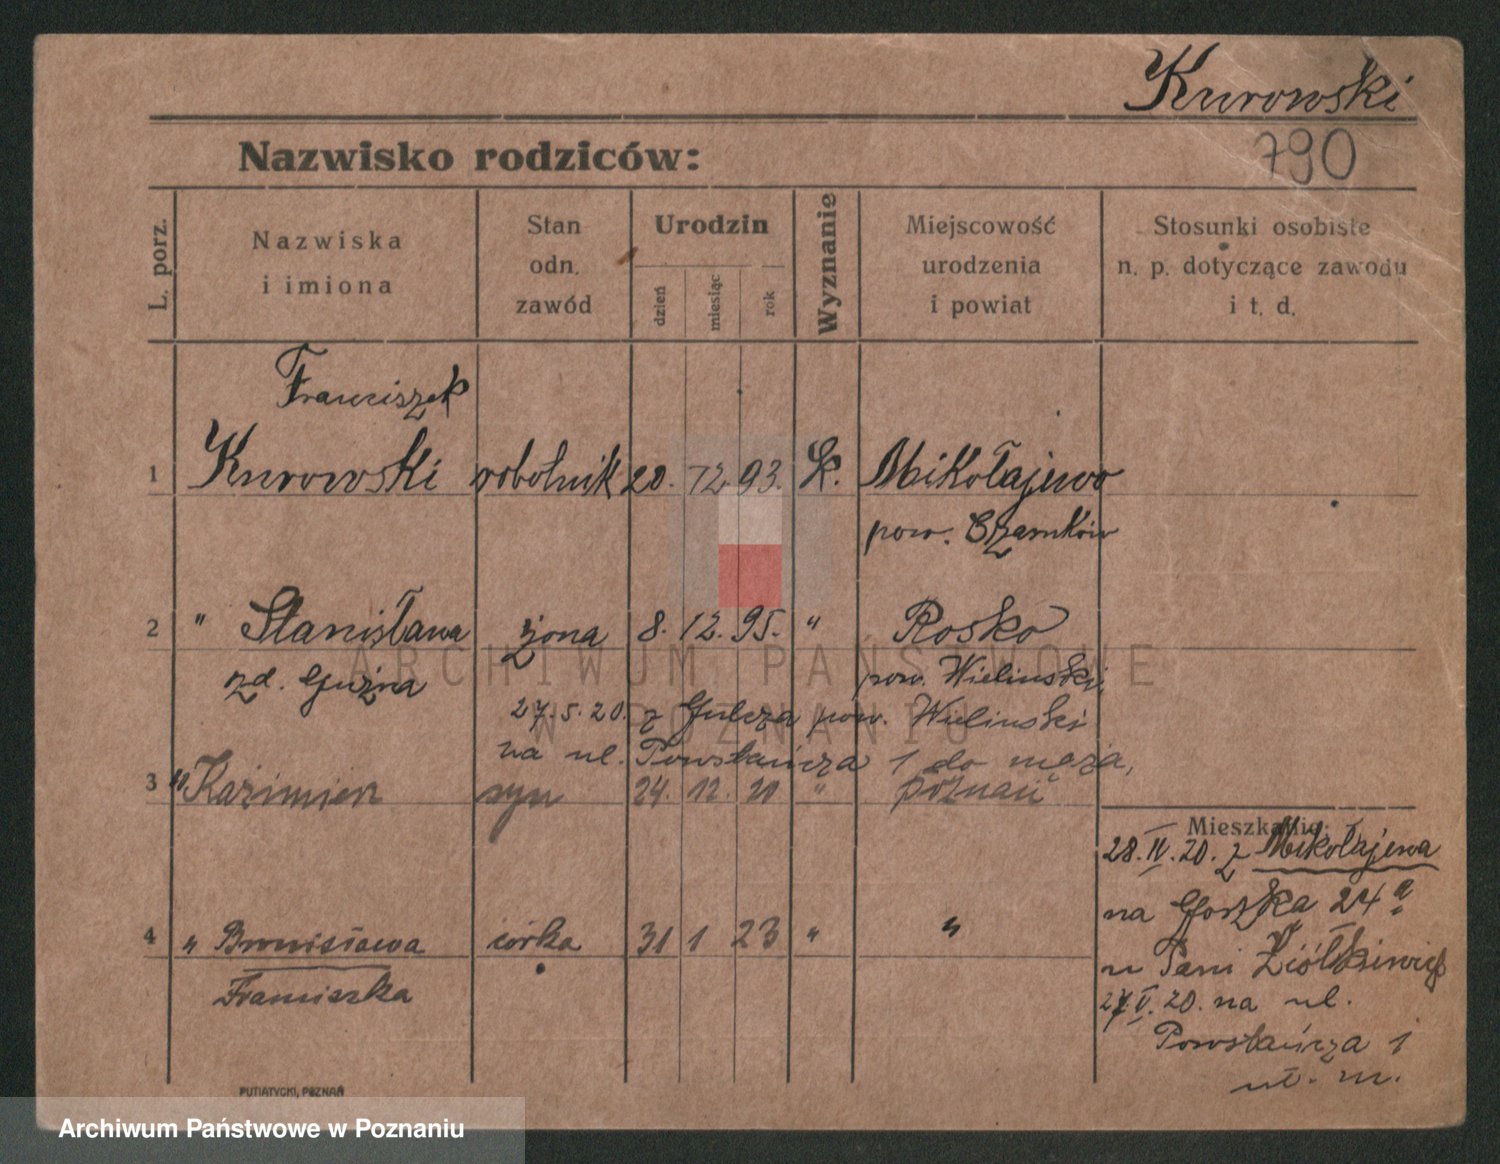 Kurowski
790
Nazwisko rodziców:
L. porz.
Nazwiska
i imiona
Stan
odn.
zawód
Urodzin
dzień
miesiąc
rok
Wyznanie
Miejscowość
urodzenia
i powiat
Stosunki osobiste
n. p. dotyczące zawodu
i t. d.
Franciszek
1 Kurowski robotnik 20. 12. 93. k. Mikołajewo
pow. Czarnków
2 " Stanisława żona 8. 12. 95. " Rosko
zd. Guźna pow. Wieluński
27. 5. 20. z Gulcza pow. Wieluński
na ul. Powstańcza 1 do męża,
3 " Kazimierz syn 24. 12. 20 " Poznań
Mieszkanie:
28. IV. 20. z Mikołajewa
na Górzka 24 a
4 " Bronisława córka 31 1 23 " "
u Pani
Franciszka
27. V. 20. na ul.
Powstańcza 1
m.
PUTIATYCKI, POZNAŃ
ARCHIWUM PAŃSTWOWE
W POZNANIU
Archiwum Państwowe w Poznaniu